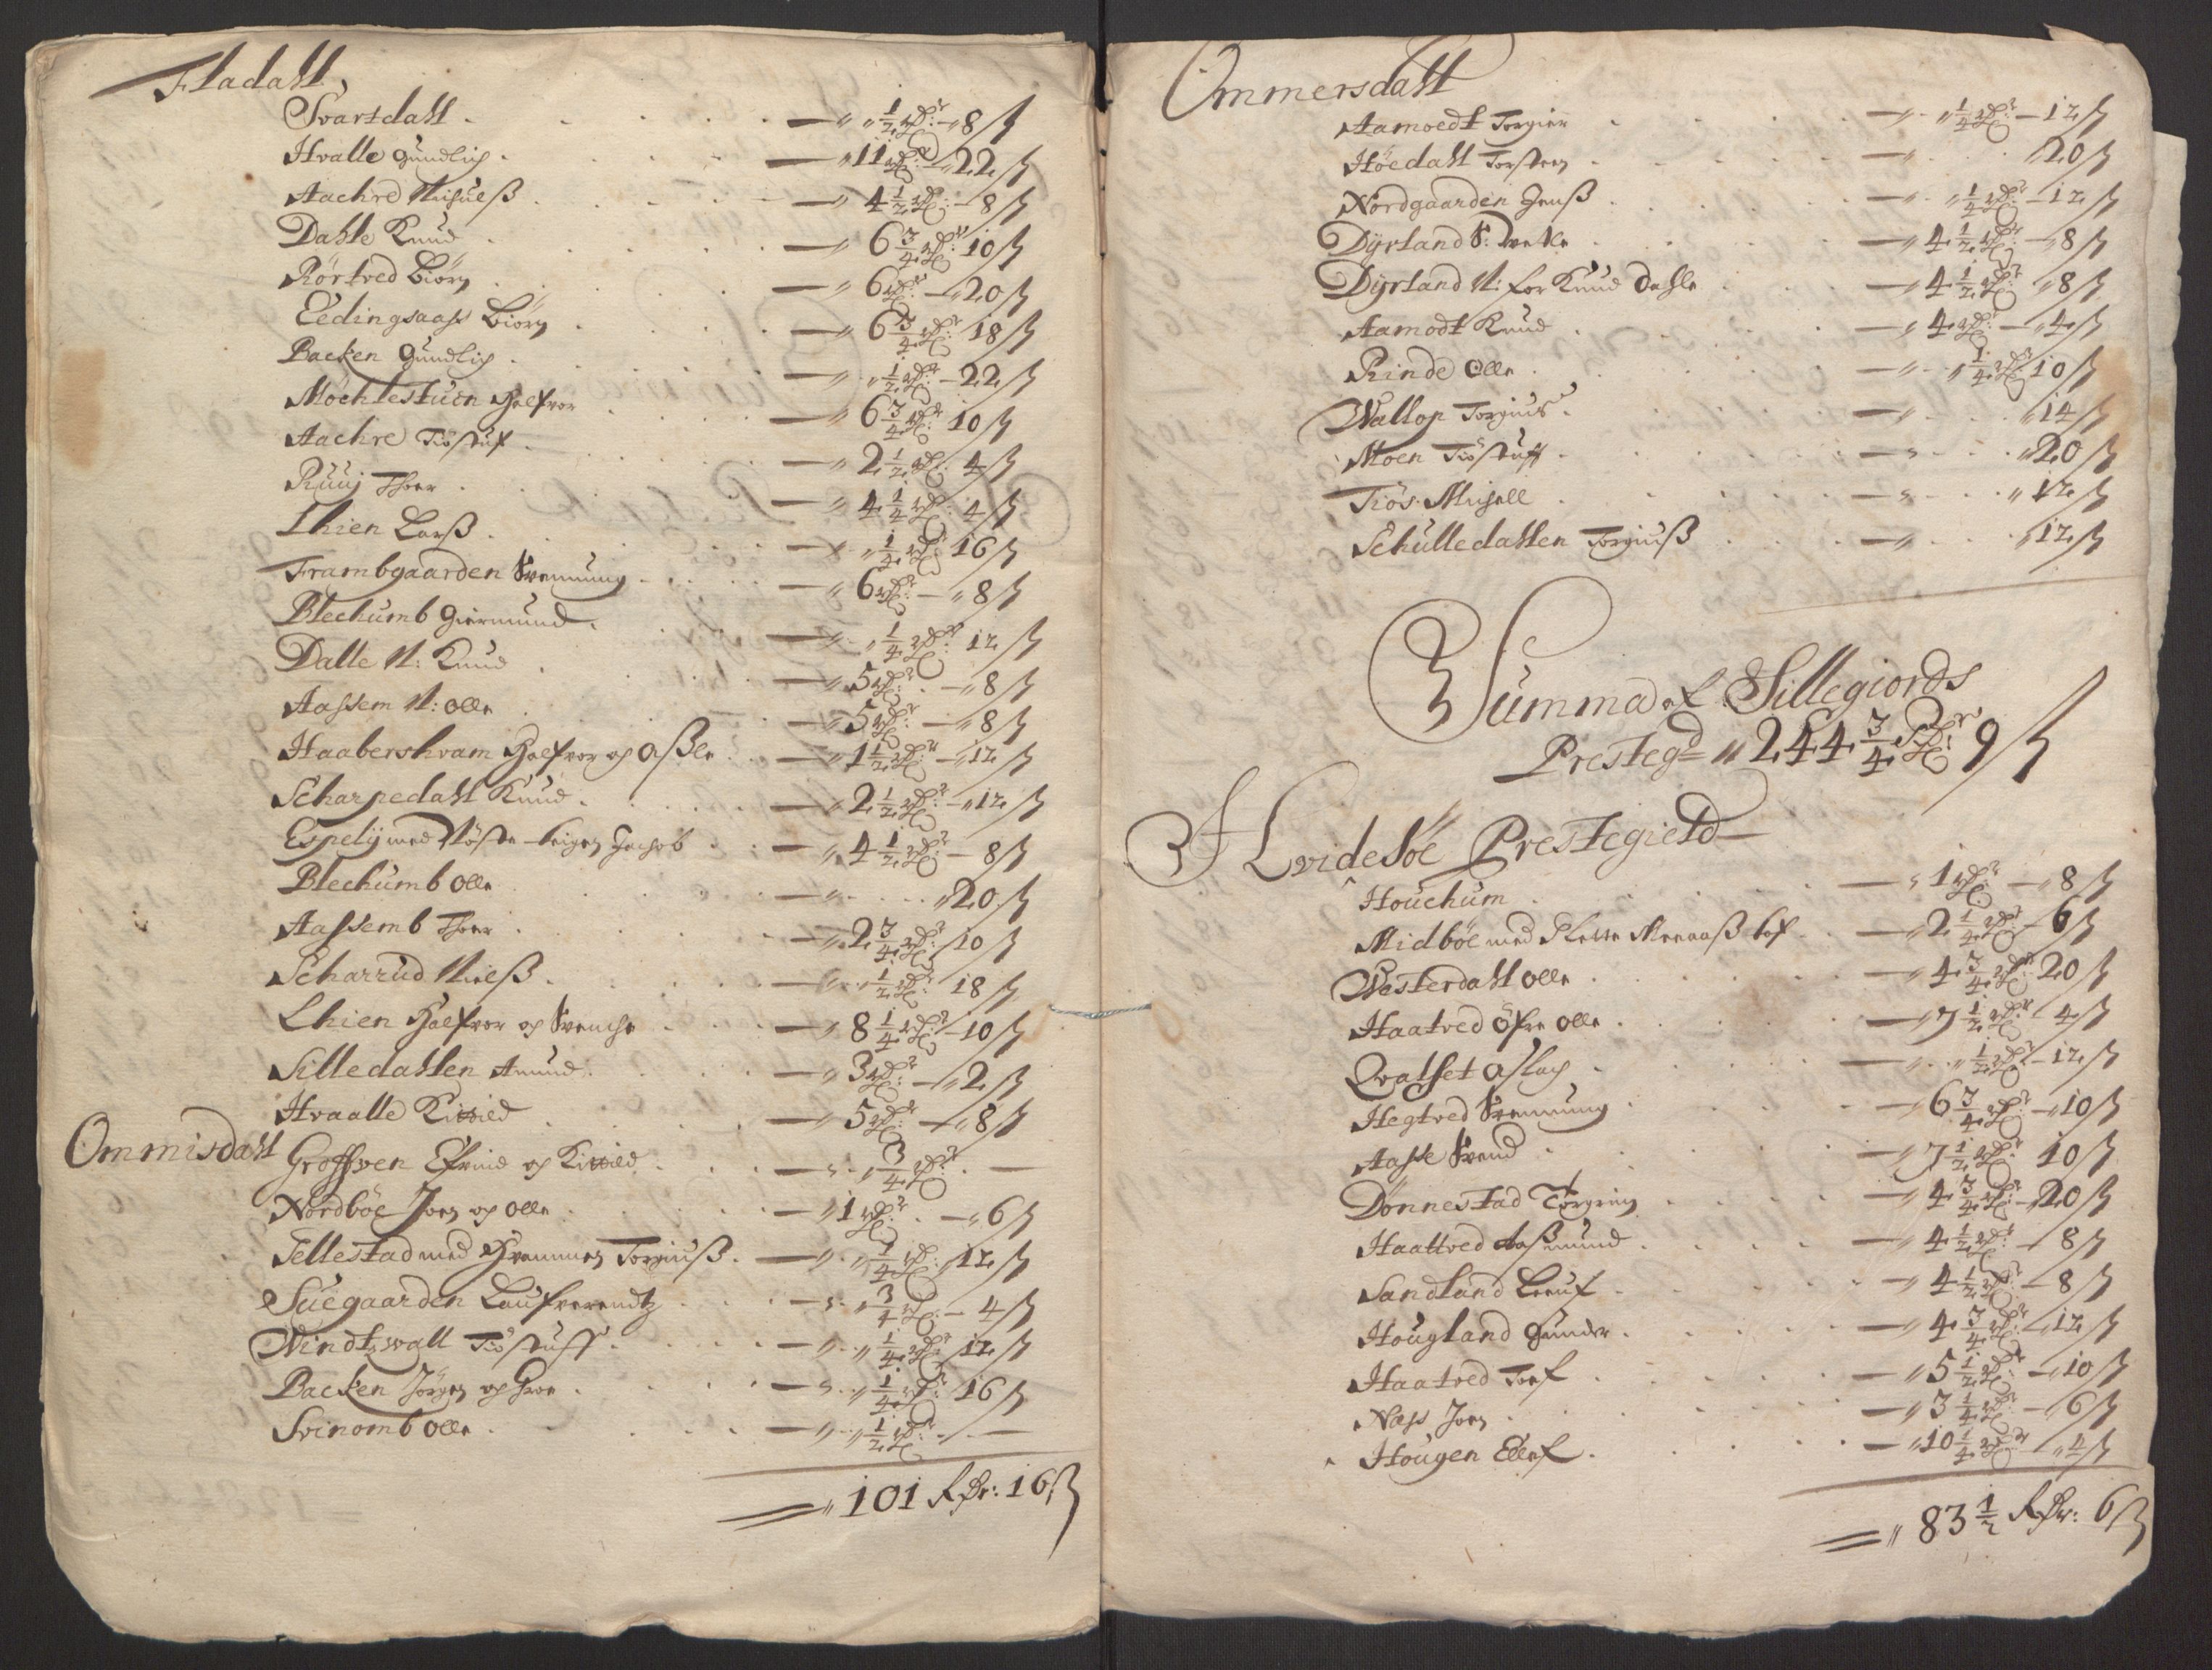 Fladall
Svartdall - " ½ rdr - 8 ß
Hvalle Gundlich - " 11 rdr - 22 ß
Aachre Nichulß - " 4 ½ rdr - 8 ß
Dahle Knud - " 6 ¾ rdr 10 ß
Rörtved Biörn - " 6 rdr - 20 ß
Eedingsaass Biörn - " 6 ¾ rdr 18 ß
Backen Gundlich - " ½ rdr - 22 ß
Möchlestuen Halfvor - " 6 ¾ rdr 10 ß
Aachre Tiöstuf - " 2 ½ rdr 4 ß
Ruuj Thor - " 4 ¼ rdr 4 ß
Lhien Larß - " ¼ rdr 16 ß
Frambgaarden Svennung - " 6 rdr - " 8 ß
Blechumb Giermund - " ¼ rdr 12 ß
Dalle N: Knud - " 5 rdr - " 8 ß
Aassem N: Olle - " 5 rdr - " 8 ß
Haabershvam Halfvor og Aßle - " 1 ½ rdr - " 12 ß
Scharpedall Knud - " 2 ½ rdr - " 12 ß
Espelij med Jachob - " 4 ½ rdr - 8 ß
Blechumb Olle - " 20 ß
Aassemb Thor - " 2 ¾ rdr 10 ß
Scharrud Nielß - " ½ rdr 18 ß
Lhien Halfvor og Svenche - " 8 ¼ rdr - 10 ß
Silledallen Amund - " 3 rdr - " 2 ß
Hvaalle Kittild - " 5 rdr - " 8 ß
Ommisdall Groffven Efvind og Kittild - " ¾ rdr -
Nordböe Joen og Olle - " 1 rdr - " 6 ß
Tellestad med Torgiuß - " ¼ rdr 12 ß
Suegaarden Laufverendtz - " ¾ rdr - 4 ß
Vindtzvall Tiöstuff - " ¼ rdr 12 ß
Backen Jörgen og Groe - " ¼ rdr 16 ß
Svinomb Olle - " ½ rdr -
" 101 Rdr: 16 ß
Ommersdall
Aamoedt Torgier - " ¼ rdr - 12 ß
Höedall Torsten - " 20 ß
Nordgaarden Jenß - " ¼ rdr - 12 ß
Dÿrland S: - " 4 ½ rdr - " 8 ß
Dÿrland N: for Knud Dahle - " 4 ½ rdr " 8 ß
Aamodt Knud - " 4 rdr - " 4 ß
Rinde Olle - " ¼ rdr 10 ß
Wallop Torgiuß - " 14 ß
Moen Tiöstuff - " 20 ß
Tiös Michell - " 12 ß
Schulledallen Torgiuß - " 12 ß
Summa af Sillegiords
Presteg d " 244 ¾ Rdr 9 ß
Hvidesöe Prestegield
Houchum - " 1 rdr - " 8 ß
Midböe med - " 2 ½ rdr - 6 ß
Westerdall Olle - " 4 ¾ rdr 20 ß
Haatved öfre Olle - " 7 ½ rdr - 4 ß
Qvalset Aslach - " ½ rdr - 12 ß
Hegtved Svennung - " 6 ¾ rdr - " 10 ß
Aasse Svend - " 7 ½ rdr 10 ß
Donnestad Torgrim - " 4 ¾ rdr - 20 ß
Haattved Aaßmund - " 4 ½ rdr - 8 ß
Sandland Leeuf - " 4 ½ rdr - 8 ß
Hougland Gunder - " 4 ¾ rdr - 12 ß
Haatved Toef - " 5 ½ rdr - " 10 ß
Næss Joen - " 3 ¼ rdr - " 6 ß
Hougen Ellef - " 10 ¼ rdr " 4 ß
" 83 ½ Rdr: 6 ß